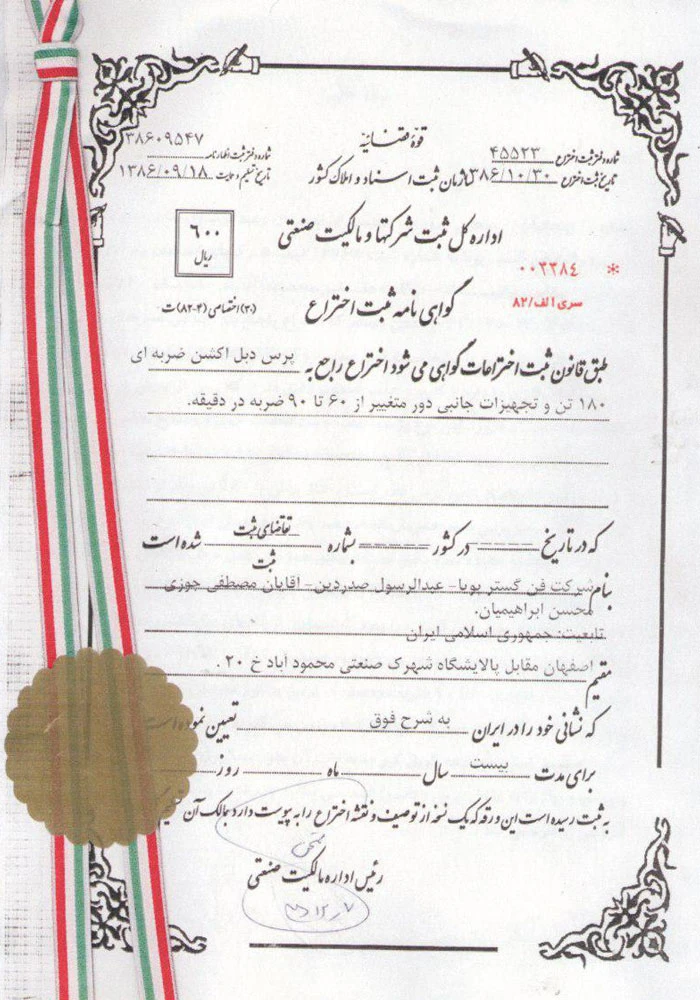 قوه قضائیه
سازمان ثبت اسناد و املاک کشور
شماره دفتر ثبت اختراع ۴۵۵۲۳
تاریخ ثبت اختراع ۱۳۸۶/۱۰/۳۰
۱۳۸۶۰۹۵۴۷
شماره دفتر ثبت اظهارنامه
تاریخ تسلیم و حمایت ۱۳۸۶/۰۹/۱۸
اداره کل ثبت شرکتها و مالکیت صنعتی
۶۰۰
ریال
* ۰۰۲۲۸۴
سری الف/۸۲
گواهی نامه ثبت اختراع
(۳۰) اختصاصی (۴-۸۲) ت
طبق قانون ثبت اختراعات گواهی می شود اختراع راجع به پرس دبل اکشن ضربه ای
۱۸۰ تن و تجهیزات جانبی دور متغییر از ۶۰ تا ۹۰ ضربه در دقیقه.
که در تاریخ ----- در کشور ----- بشماره تقاضای ثبت شده است
ثبت
بنام شرکت فن گستر پویا- عبدالرسول صدردین- اقایان مصطفی جوزی
محسن ابراهیمیان.
تابعیت: جمهوری اسلامی ایران
مقیم اصفهان مقابل پالایشگاه شهرک صنعتی محمود آباد خ ۲۰ .
که نشانی خود را در ایران به شرح فوق تعیین نموده است
برای مدت بیست سال ماه روز
به ثبت رسیده است این ورقه که یک نسخه از توصیف و نقشه اختراع را به پیوست دارد بمالک آن
رئیس اداره مالکیت صنعتی